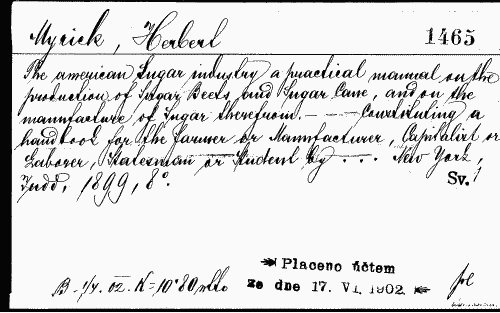 Myrick, Herbert 1465
The american Sugar industry a practical manual on the
production of Sugar Beets and Sugar Cane, and on the
manufacture of Sugar therefrom. — — Constituting a
handbook for the Farmer or Manufacturer, Capitalist or
Laborer, Statesman or Student by . . . New York,
Judd, 1899, 8°.
Sv. 1
Placeno účtem
ze dne 17. VI. 1902